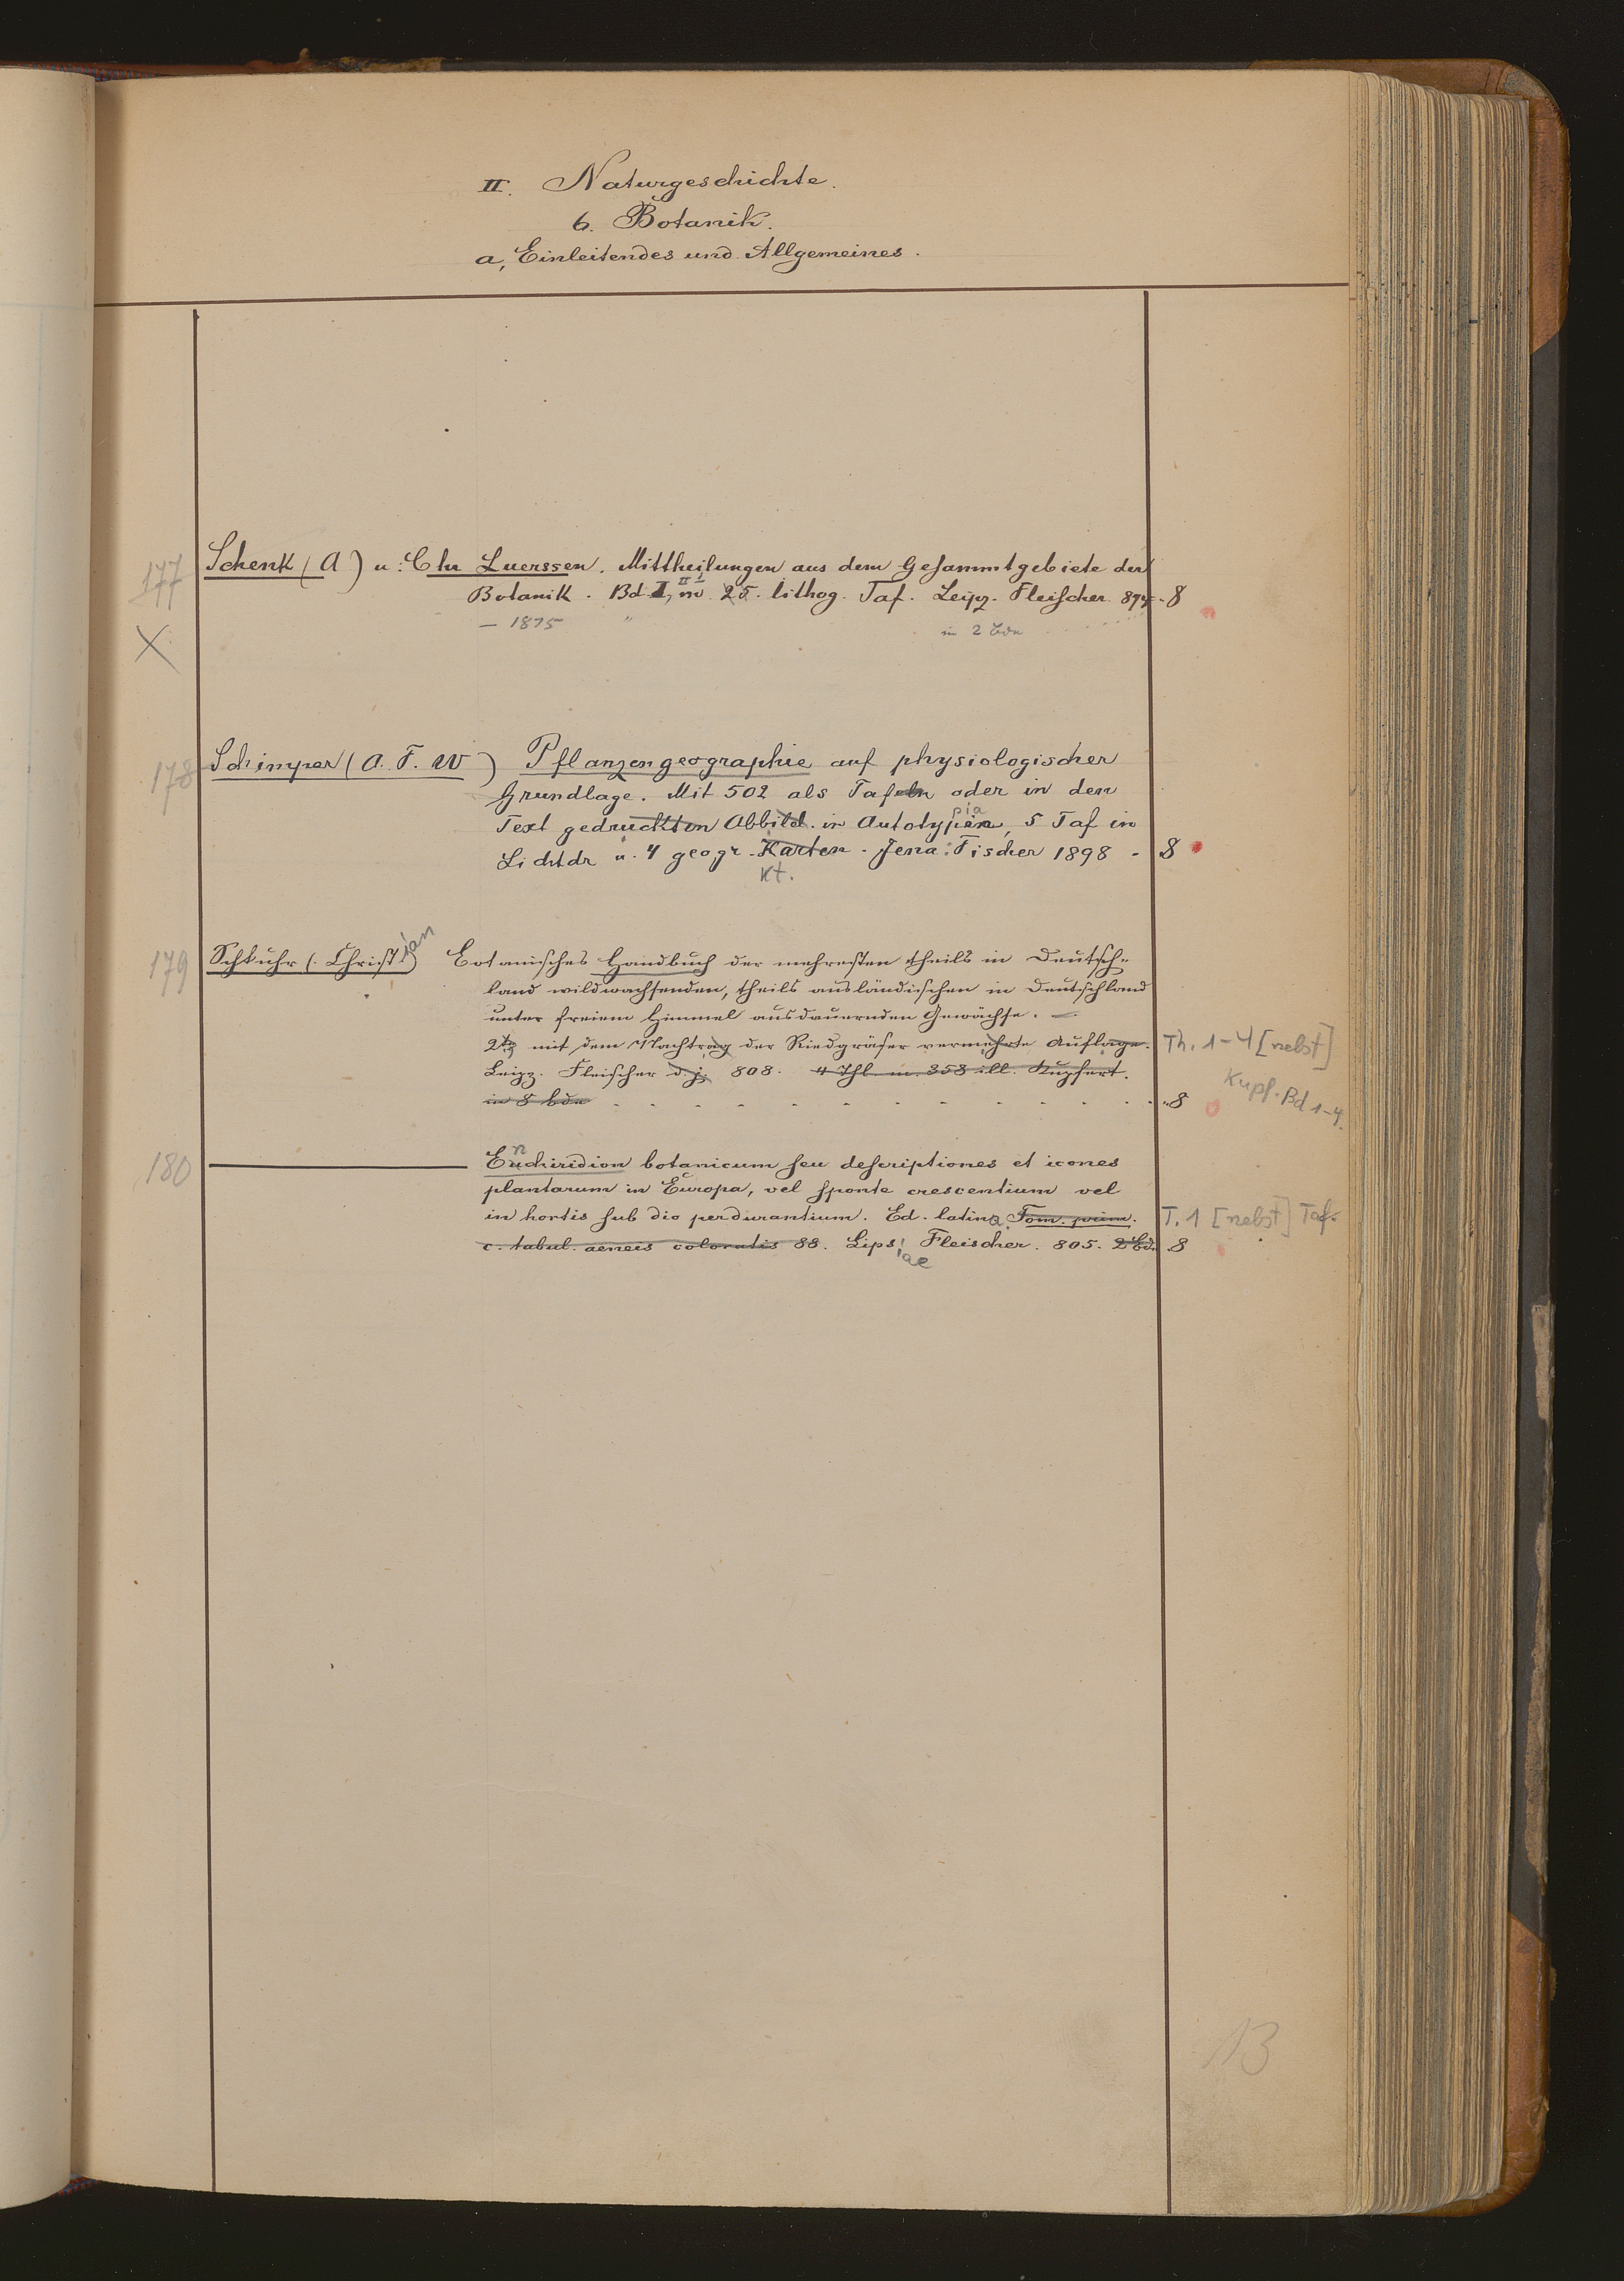 II. Naturgeschichte.
6. Botanik.
a, Einleitendes und Allgemeines.
177 Schenk (A) u: Chr Luerssen. Mittheilungen aus dem Gesammtgebiete der
Botanik. Bd I, II 1 m 25. lithog. Taf. Leipz. Fleischer 874 - 8
X — 1875 " in 2 Bdn
178 Schimper (A. F. W) Pflanzengeographie auf physiologischer
Grundlage. Mit 502 als Tafeln oder in den
Text gedruckten Abbild. in Autotypien, 5 Taf in
Lichtdr u. 4 geogr. Karten. Jena: Fischer 1898 - 8
Kt.
179 Schkuhr (: Christian) Botanisches Handbuch der mehresten theils in Deutsch-
land wildwachsenden, theils ausländischen in Deutschland
unter freiem Himmel ausdauernden Gewächse. —
2te mit dem Nachtrag der Riedgräser vermehrte Auflage. Th. 1-4 [nebst]
Leipz. Fleischer d. j. 808. 4 Thl. m. 358 ill. Kupfert. Kupf. Bd 1-4.
in 8 Bdn - - - - - - - - - - - 8
180 ——— Enchiridion botanicum seu descriptiones et icones
plantarum in Europa, vel sponte crescentium vel
in hortis sub dio perdurantium. Ed. latina. Tom. prim. T. 1 [nebst] Taf.
c. tabul. aeneis coloratis 88. Lipsiae Fleischer. 805. 2 Bd. 8
13